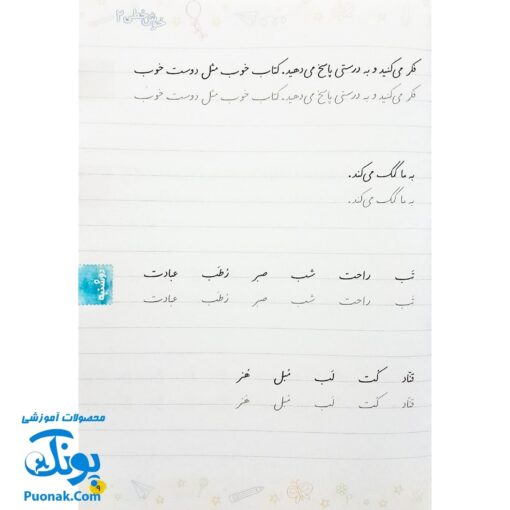 خوش خطی ۲
فکر می‌کنید و به درستی پاسخ می‌دهید. کتاب خوب مثل دوست خوب
فکر می‌کنید و به درستی پاسخ می‌دهید. کتاب خوب مثل دوست خوب
به ما کمک می‌کند.
به ما کمک می‌کند.
تب راحت شب صبر رطب عبادت
تب راحت شب صبر رطب عبادت
دوشنبه
قناد کت لب مبل هنر
قناد کت لب مبل هنر
محصولات آموزشی
پونک
Puonak.Com
۹